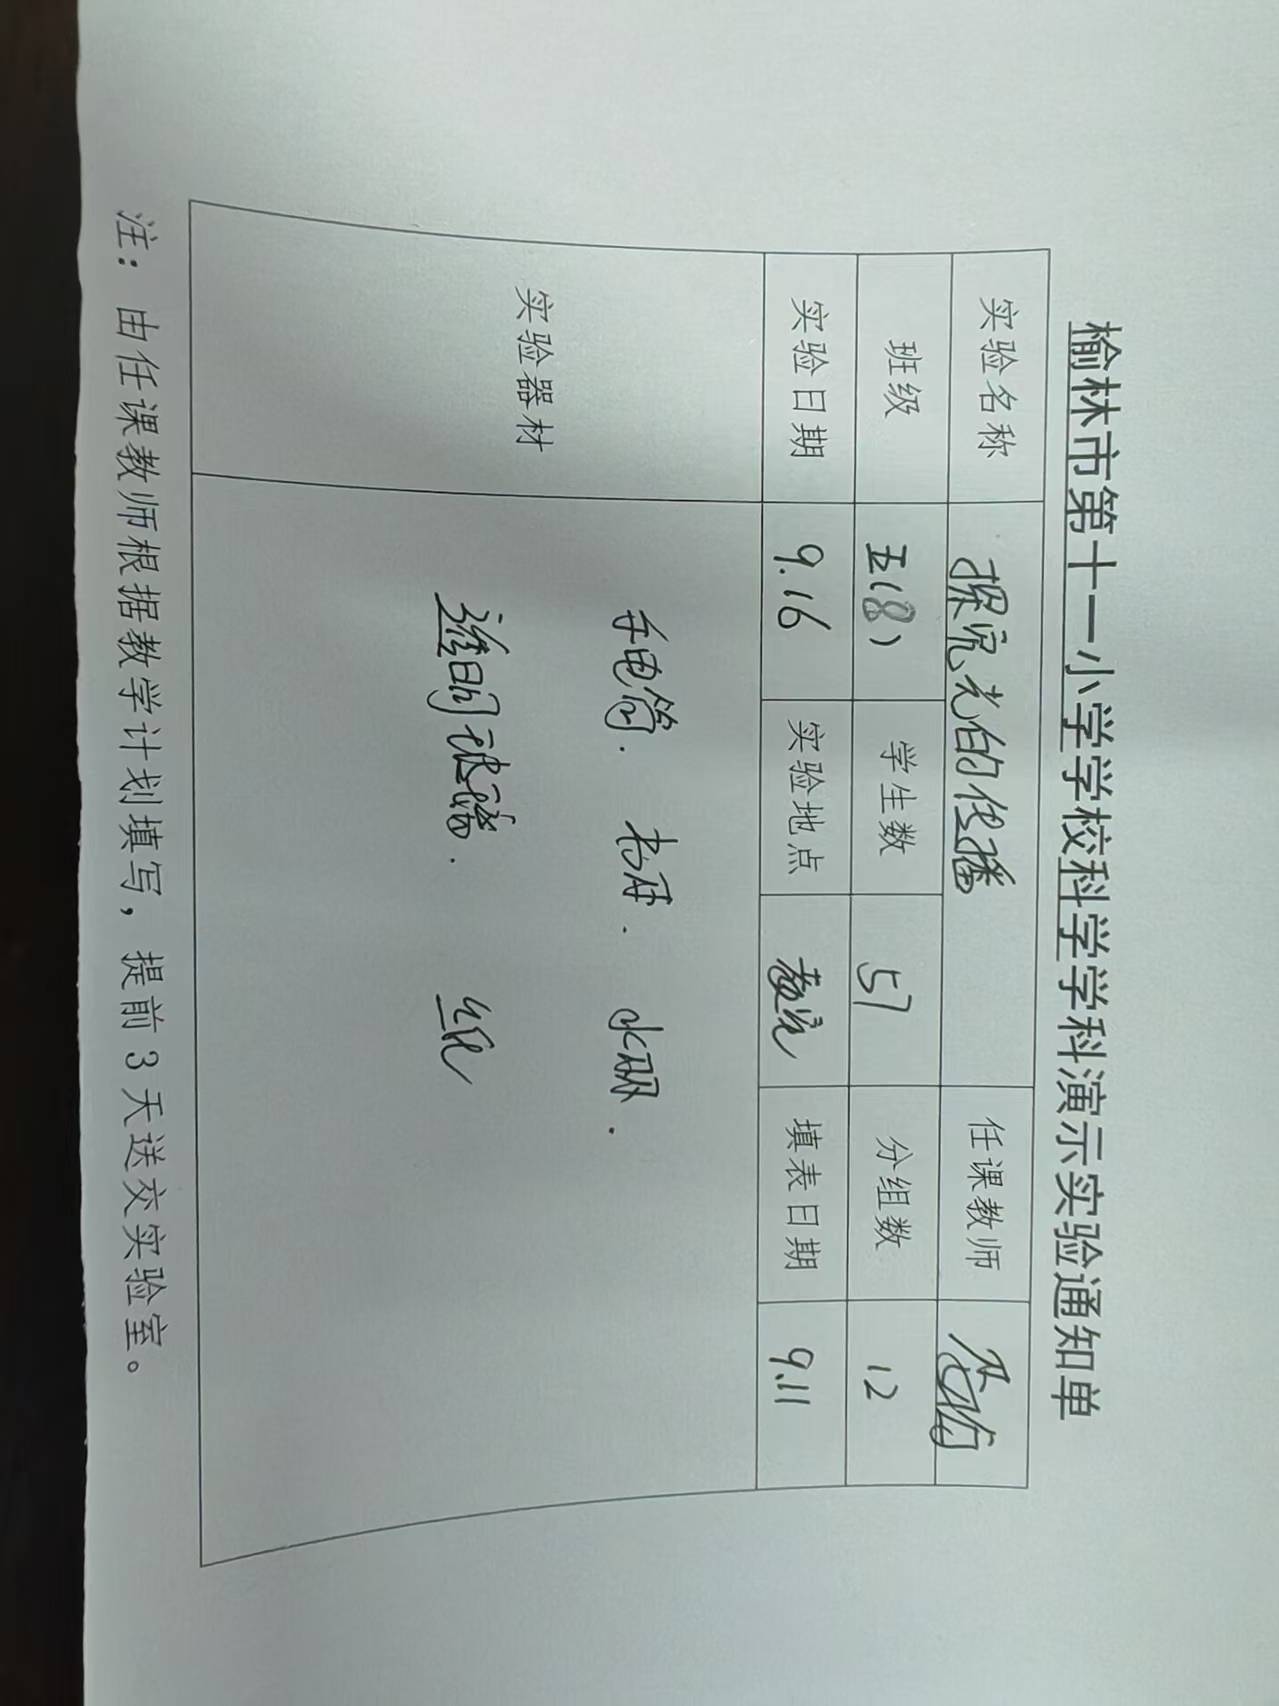 榆林市第十一小学学校科学学科演示实验通知单
实验名称 探究光的传播 任课教师
班级 五(8) 学生数 57 分组数 12
实验日期 9.16 实验地点 教室 填表日期 9.11
实验器材 手电筒. 书本. 水
透明玻璃.
注：由任课教师根据教学计划填写，提前3天送交实验室。